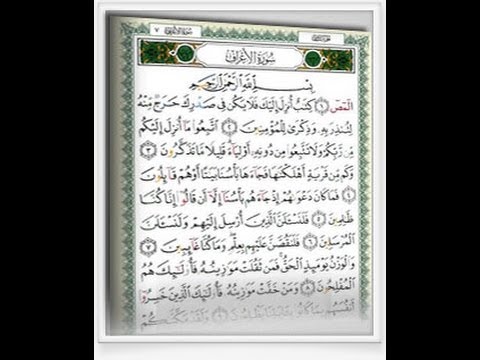 سُورَةُ الأَعْرَافِ ٧
سُورَةُ الأَعْرَافِ
بِسْمِ ٱللَّهِ ٱلرَّحْمَٰنِ ٱلرَّحِيمِ
الٓمٓصٓ ١ كِتَٰبٌ أُنزِلَ إِلَيْكَ فَلَا يَكُن فِي صَدْرِكَ حَرَجٌ مِّنْهُ
لِتُنذِرَ بِهِۦ وَذِكْرَىٰ لِلْمُؤْمِنِينَ ٢ ٱتَّبِعُوا۟ مَآ أُنزِلَ إِلَيْكُم
مِّن رَّبِّكُمْ وَلَا تَتَّبِعُوا۟ مِن دُونِهِۦٓ أَوْلِيَآءَ ۗ قَلِيلًا مَّا تَذَكَّرُونَ ٣
وَكَم مِّن قَرْيَةٍ أَهْلَكْنَٰهَا فَجَآءَهَا بَأْسُنَا بَيَٰتًا أَوْ هُمْ قَآئِلُونَ
٤ فَمَا كَانَ دَعْوَىٰهُمْ إِذْ جَآءَهُم بَأْسُنَآ إِلَّآ أَن قَالُوٓا۟ إِنَّا كُنَّا
ظَٰلِمِينَ ٥ فَلَنَسْـَٔلَنَّ ٱلَّذِينَ أُرْسِلَ إِلَيْهِمْ وَلَنَسْـَٔلَنَّ
ٱلْمُرْسَلِينَ ٦ فَلَنَقُصَّنَّ عَلَيْهِم بِعِلْمٍ ۖ وَمَا كُنَّا غَآئِبِينَ ٧
وَٱلْوَزْنُ يَوْمَئِذٍ ٱلْحَقُّ ۚ فَمَن ثَقُلَتْ مَوَٰزِينُهُۥ فَأُو۟لَٰٓئِكَ هُمُ
ٱلْمُفْلِحُونَ ٨ وَمَنْ خَفَّتْ مَوَٰزِينُهُۥ فَأُو۟لَٰٓئِكَ ٱلَّذِينَ خَسِرُوٓا۟
أَنفُسَهُم بِمَا كَانُوا۟ بِـَٔايَٰتِنَا يَظْلِمُونَ ٩ وَلَقَدْ مَكَّنَّٰكُمْ